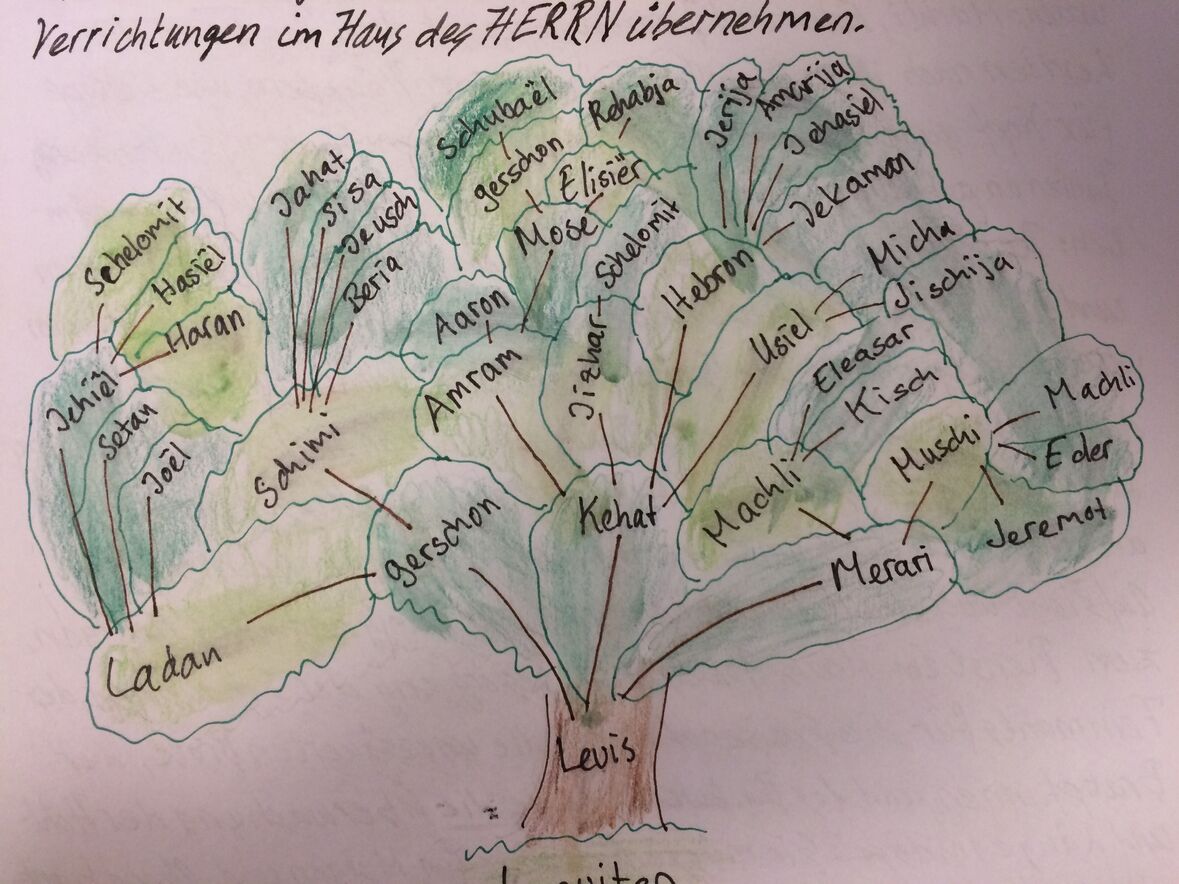 Verrichtungen im Haus des HERRN übernehmen.
Schubaël
Rehabja
Jerija
Amarija
Jehasiël
Jekaman
gerschon
Elisiër
Mose
Schelomit
Hebron
Micha
Jischija
Usiel
Jahat
Sisa
Jeusch
Beria
Schelomit
Hasiël
Haran
Jehiël
Setan
Joël
Schimi
Aaron
Amram
Jizhar
Eleasar
Kisch
Machli
Muschi
Machli
Eder
Jeremot
gerschon
Kehat
Merari
Ladan
Levis